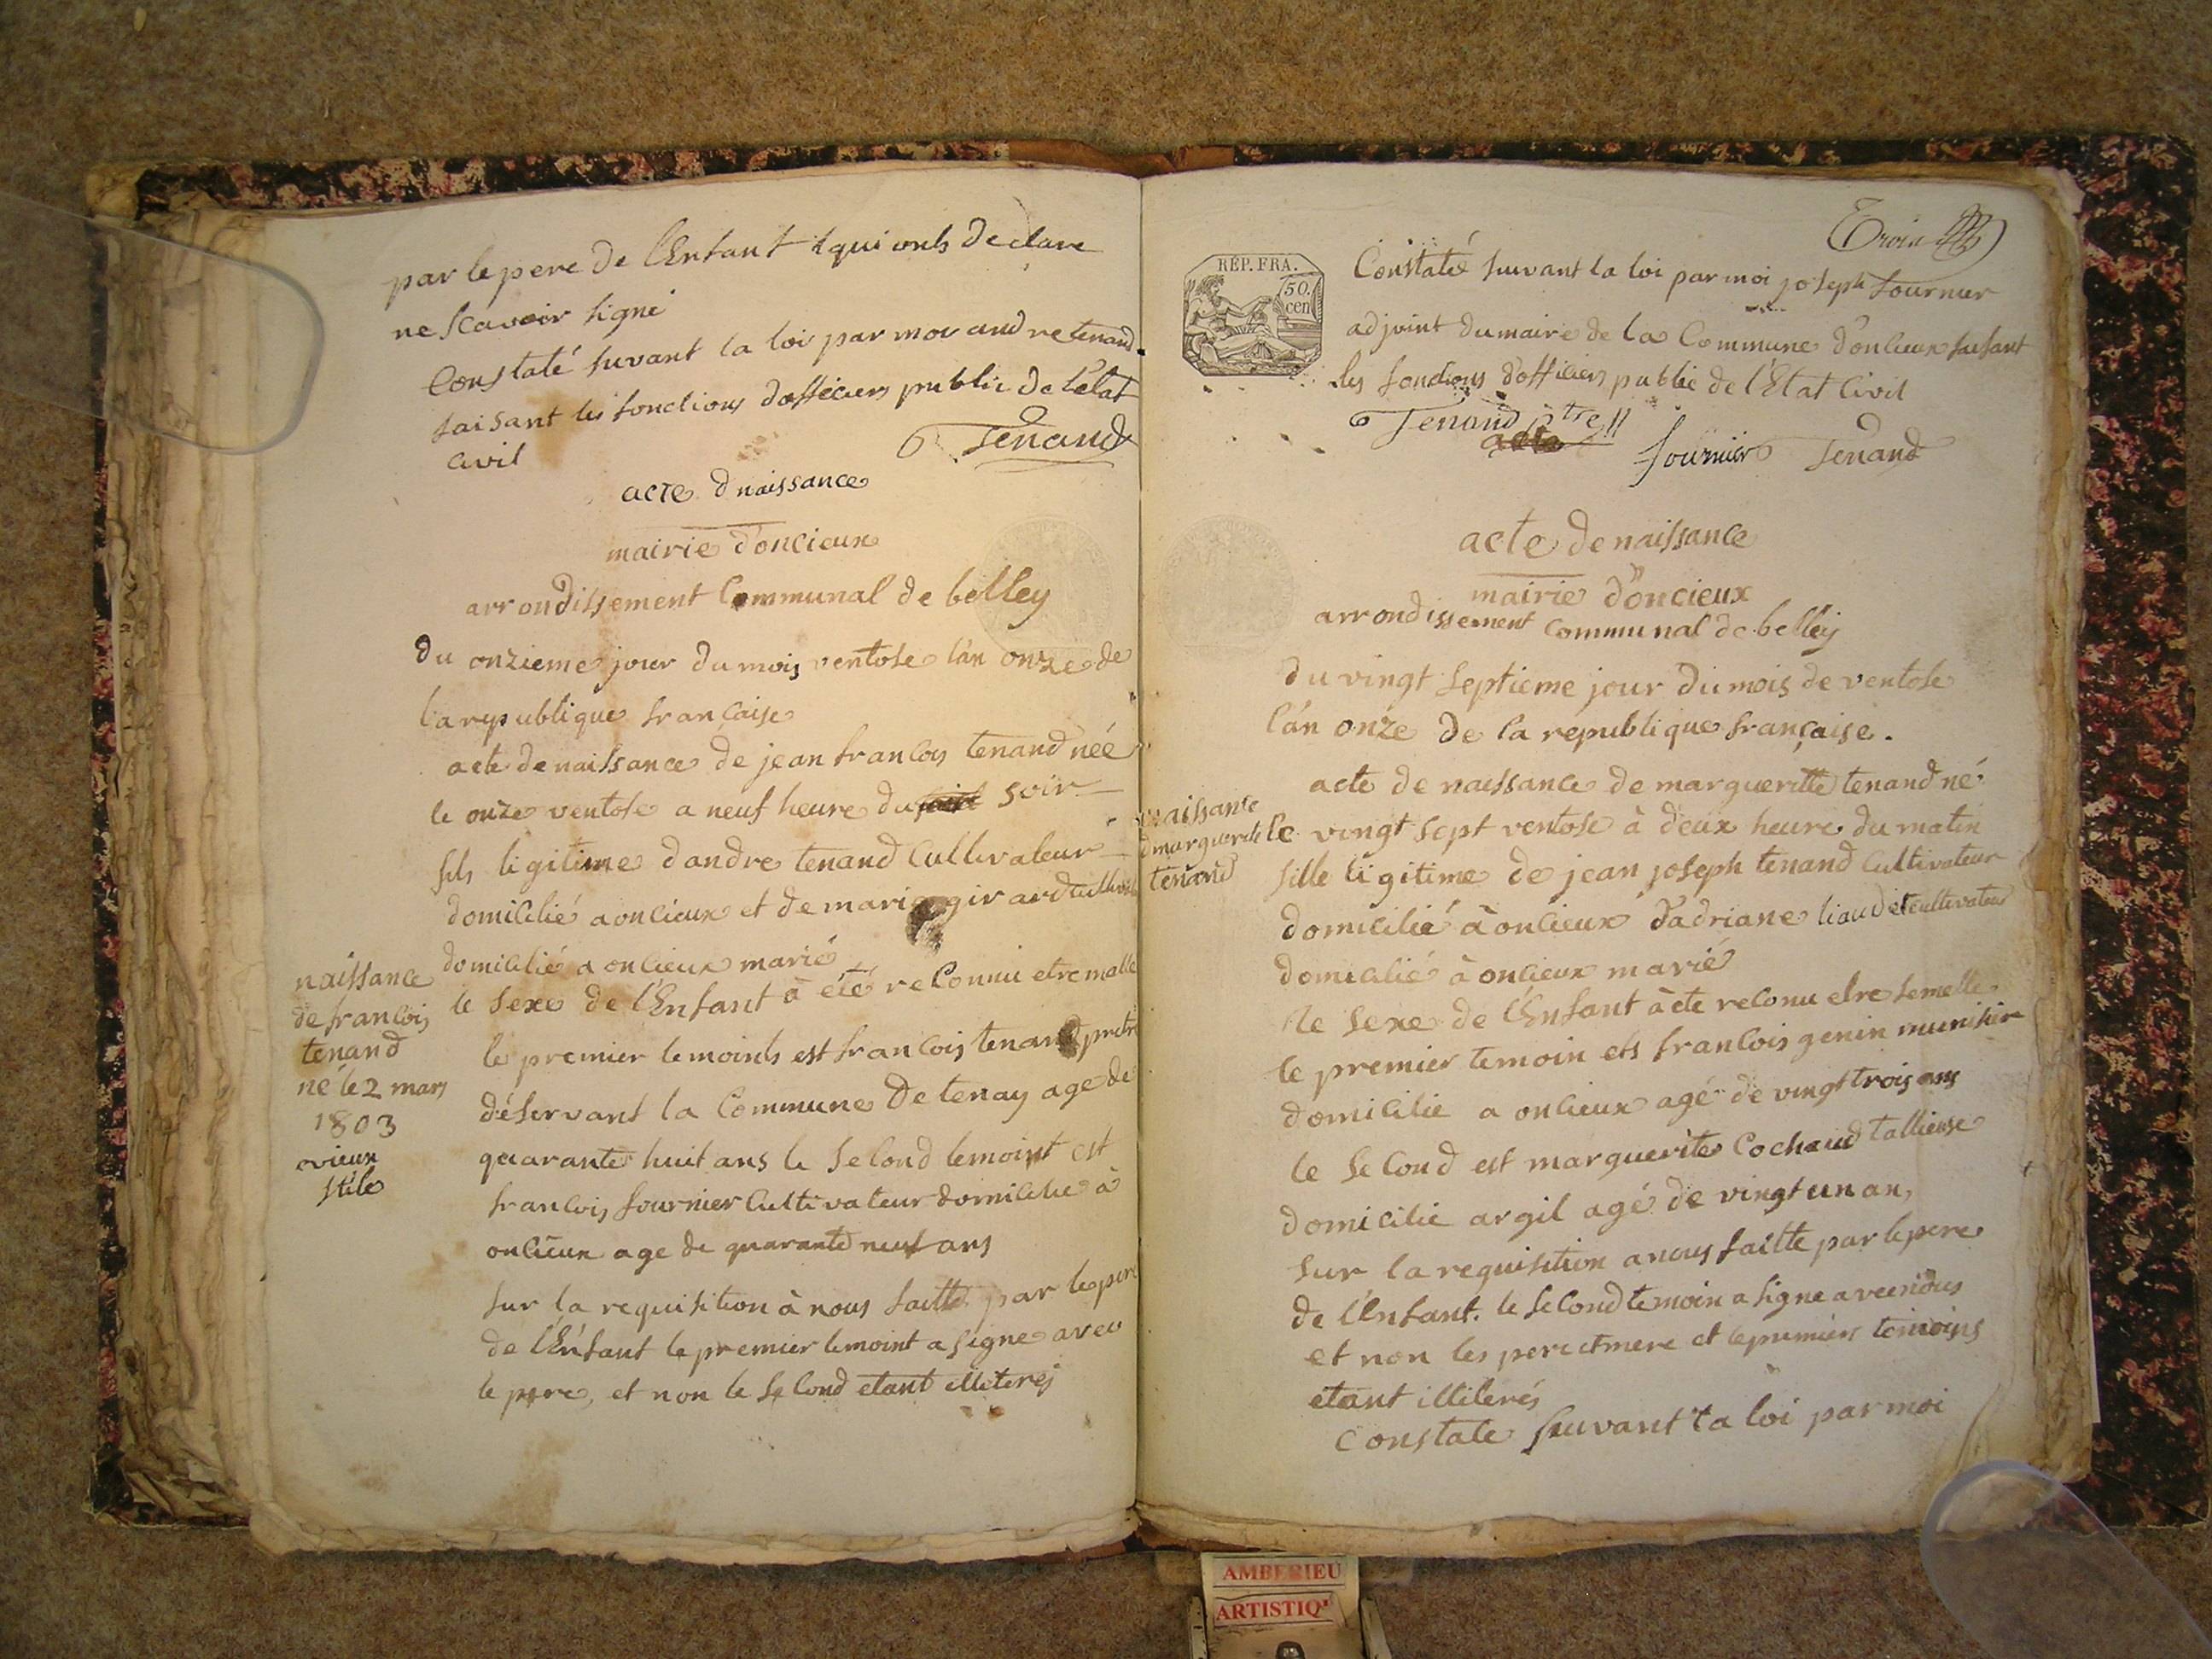 par le pere de l'Enfant & qui onts declare
ne scavoir signé
Constaté suivant la loi par moi andre tenand
faisant les fonctions dofficiers public de l'état
civil
Tenand
acte d naissance
mairie d'oncieux
arrondissement Communal de belley
du onzieme jour du mois ventose l'an onze de
la republique francaise
acte de naissance de jean francois tenand née
le onze ventose a neuf heure du soir
fils ligitime dandre tenand Cultivateur
domicilié a oncieux et de marie girard
domicilié a oncieux marié
le sexe de l'Enfant à été reconnu etre malle
le premier temoints est francois tenand pretre
déservant la Commune de tenay age de
quarante huit ans le second temoint est
francois fournier Cultivateur domicilie à
oncieux age de quarante neuf ans
sur la requisition à nous faitte par le pere
de l'Enfant le premier temoint a signe avec
le pere, et non le second etant illiterés
naissance
de francois
tenand
né le 2 mars
1803
vieux
stile
Troin
RÉP. FRA.
50.
cen
Constaté suivant la loi par moi joseph fournier
adjoint du maire de la Commune d'oncieux faisant
les fonctions d'officiers public de l'État Civil
Tenand ptre
acte
fournier Tenand
acte de naissance
mairie d'oncieux
arrondissement communal de belley
du vingt septieme jour du mois de ventose
l'án onze de la république française.
acte de naissance de margueritte tenand né
le vingt sept ventose à deux heure du matin
fille ligitime de jean joseph tenand Cultivateur
domicilié à oncieux d'adriane liaudet cultivateur
domicilié à oncieux marié
le sexe de l'Enfant à été reconu etre femelle
le premier temoin ets francois genin munisier
domicilie a oncieux agé de vingt trois ans
le second est marguerite Cochaud tallieuse
domicilie argil agé de vingt un an,
sur la requisition a nous faitte par le pere
de l'Enfant. le second temoin a signe avec nous
et non les pere et mere et le premier temoins
etant illiterés
Constate suivant la loi par moi
naissance
d marguerite
tenand
AMBERIEU
ARTISTIQ'